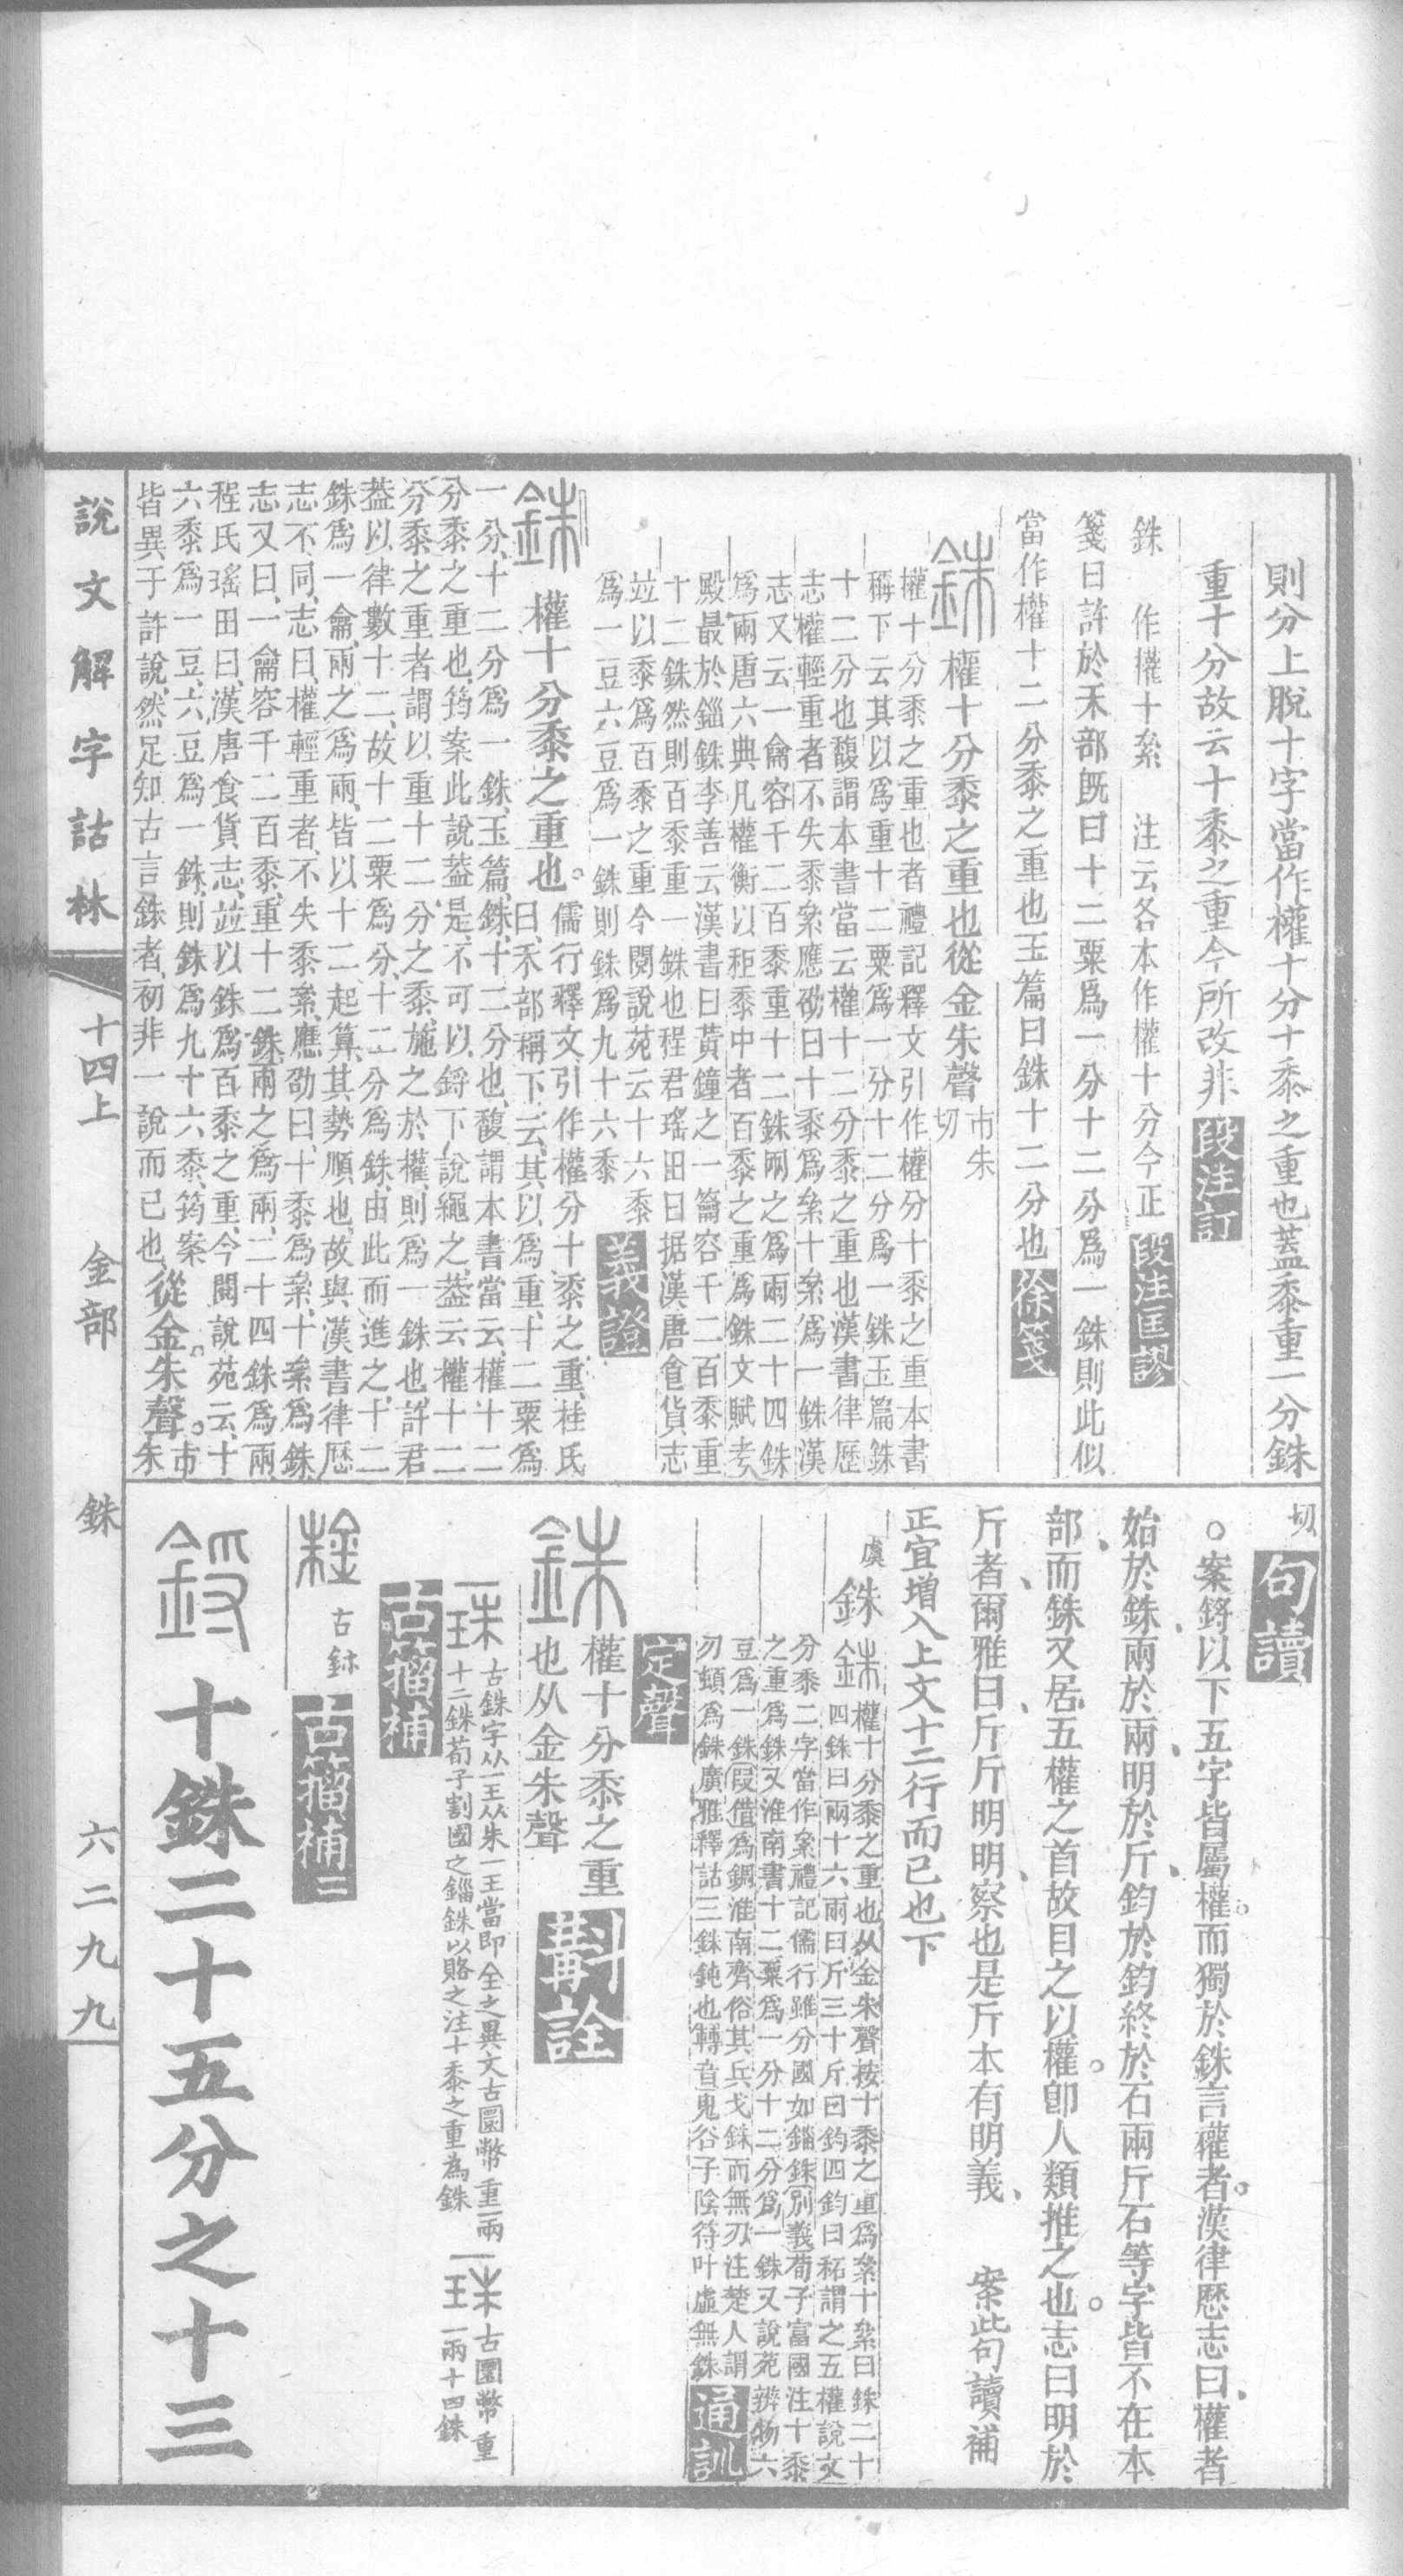 則分上脫十字當作權十分十黍之重也蓋黍重一分銖
重十分故云十黍之重今所改非 段注訂
銖 作權十絫 注云各本作權十分今正 段注匡謬
箋曰許於禾部旣曰十二粟爲一分十二分爲一銖則此似
當作權十二分黍之重也玉篇曰銖十二分也 徐箋
銖 權十分黍之重也從金朱聲 市朱切
權十分黍之重也者禮記釋文引作權分十黍之重本書
稱下云其以爲重十二粟爲一分十二分爲一銖玉篇銖
十二分也馥謂本書當云權十二分黍之重也漢書律歷
志權輕重者不失黍絫應劭曰十黍爲絫十絫爲一銖漢
志又云一龠容千二百黍重十二銖兩之爲兩二十四銖
爲兩唐六典凡權衡以秬黍中者百黍之重爲銖文賦考
殿最於錙銖李善云漢書曰黃鐘之一籥容千二百黍重
十二銖然則百黍重一銖也程君瑤田曰据漢唐食貨志
竝以黍爲百黍之重今閱說苑云十六黍
爲一豆六豆爲一銖則銖爲九十六黍 義證
銖 權十分黍之重也。儒行釋文引作權分十黍之重、桂氏
曰、禾部稱下云、其以爲重、十二粟爲
一分、十二分爲一銖、玉篇、銖、十二分也、馥謂本書當云、權十二
分黍之重也、筠案此說葢是、不可以鋝下說繩之、葢云權十二
分黍之重者、謂以重十二分之黍、施之於權、則爲一銖也、許君
葢以律數十二、故十二粟爲分、十二分爲銖、由此而進之、十二
銖爲一龠、兩之爲兩、皆以十二起算、其勢順也、故與漢書律歷
志不同、志曰、權輕重者、不失黍絫、應劭曰、十黍爲絫、十絫爲銖、
志又曰、一龠容千二百黍、重十二銖、兩之爲兩、二十四銖爲兩、
程氏瑤田曰、漢唐食貨志、竝以銖爲百黍之重、今閱說苑云、十
六黍爲一豆、六豆爲一銖、則銖爲九十六黍、筠案
皆異于許說、然足知古言銖者、初非一說而已也、從金。朱聲。市朱
切 句讀
○案鋝以下五字皆屬權。而獨於銖言權者。漢律歷志曰、權者
始於銖、兩於兩、明於斤、鈞於鈞、終於石、兩斤石等字皆不在本
部、而銖又居五權之首、故目之以權。卽人類推之也。志曰明於
斤者、爾雅曰、斤斤明明、察也、是斤本有明義、 案此句讀補
正宜增入上文十二行而已也下
虞 銖 銖 權十分黍之重也从金朱聲按十黍之重爲絫十絫曰銖二十
四銖曰兩十六兩曰斤三十斤曰鈞四鈞曰䄷謂之五權說文
分黍二字當作絫禮記儒行雖分國如錙銖〔別義〕荀子富國注十黍
之重爲銖又淮南書十二粟爲一分十二分爲一銖又說苑辨物六
豆爲一銖〔叚借〕爲鋼淮南齊俗其兵戈銖而無刃注楚人謂
刃頓爲銖廣雅釋詁三銖鈍也〔轉音〕鬼谷子陰符叶虛無銖 通訓定聲
銖 權十分黍之重
也从金朱聲 斠詮
古銖字从王从朱一王當即全之異文古圜幣重一兩
十二銖荀子割國之錙銖以賂之注十黍之重為銖
古圜幣重
一兩十四銖
古籀補
古鉥 古籀補二
鋝 十銖二十五分之十三
說文解字詁林 十四上 金部 銖 六二九九